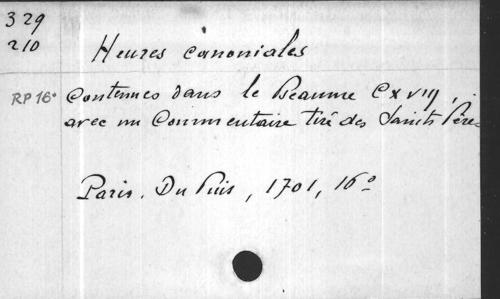 329
210
Heures canoniales
RP 16° Contenues dans le Pseaume CXVIII,
avec un Commentaire tiré des Saints Pères
Paris. Du Puis, 1701, 16°